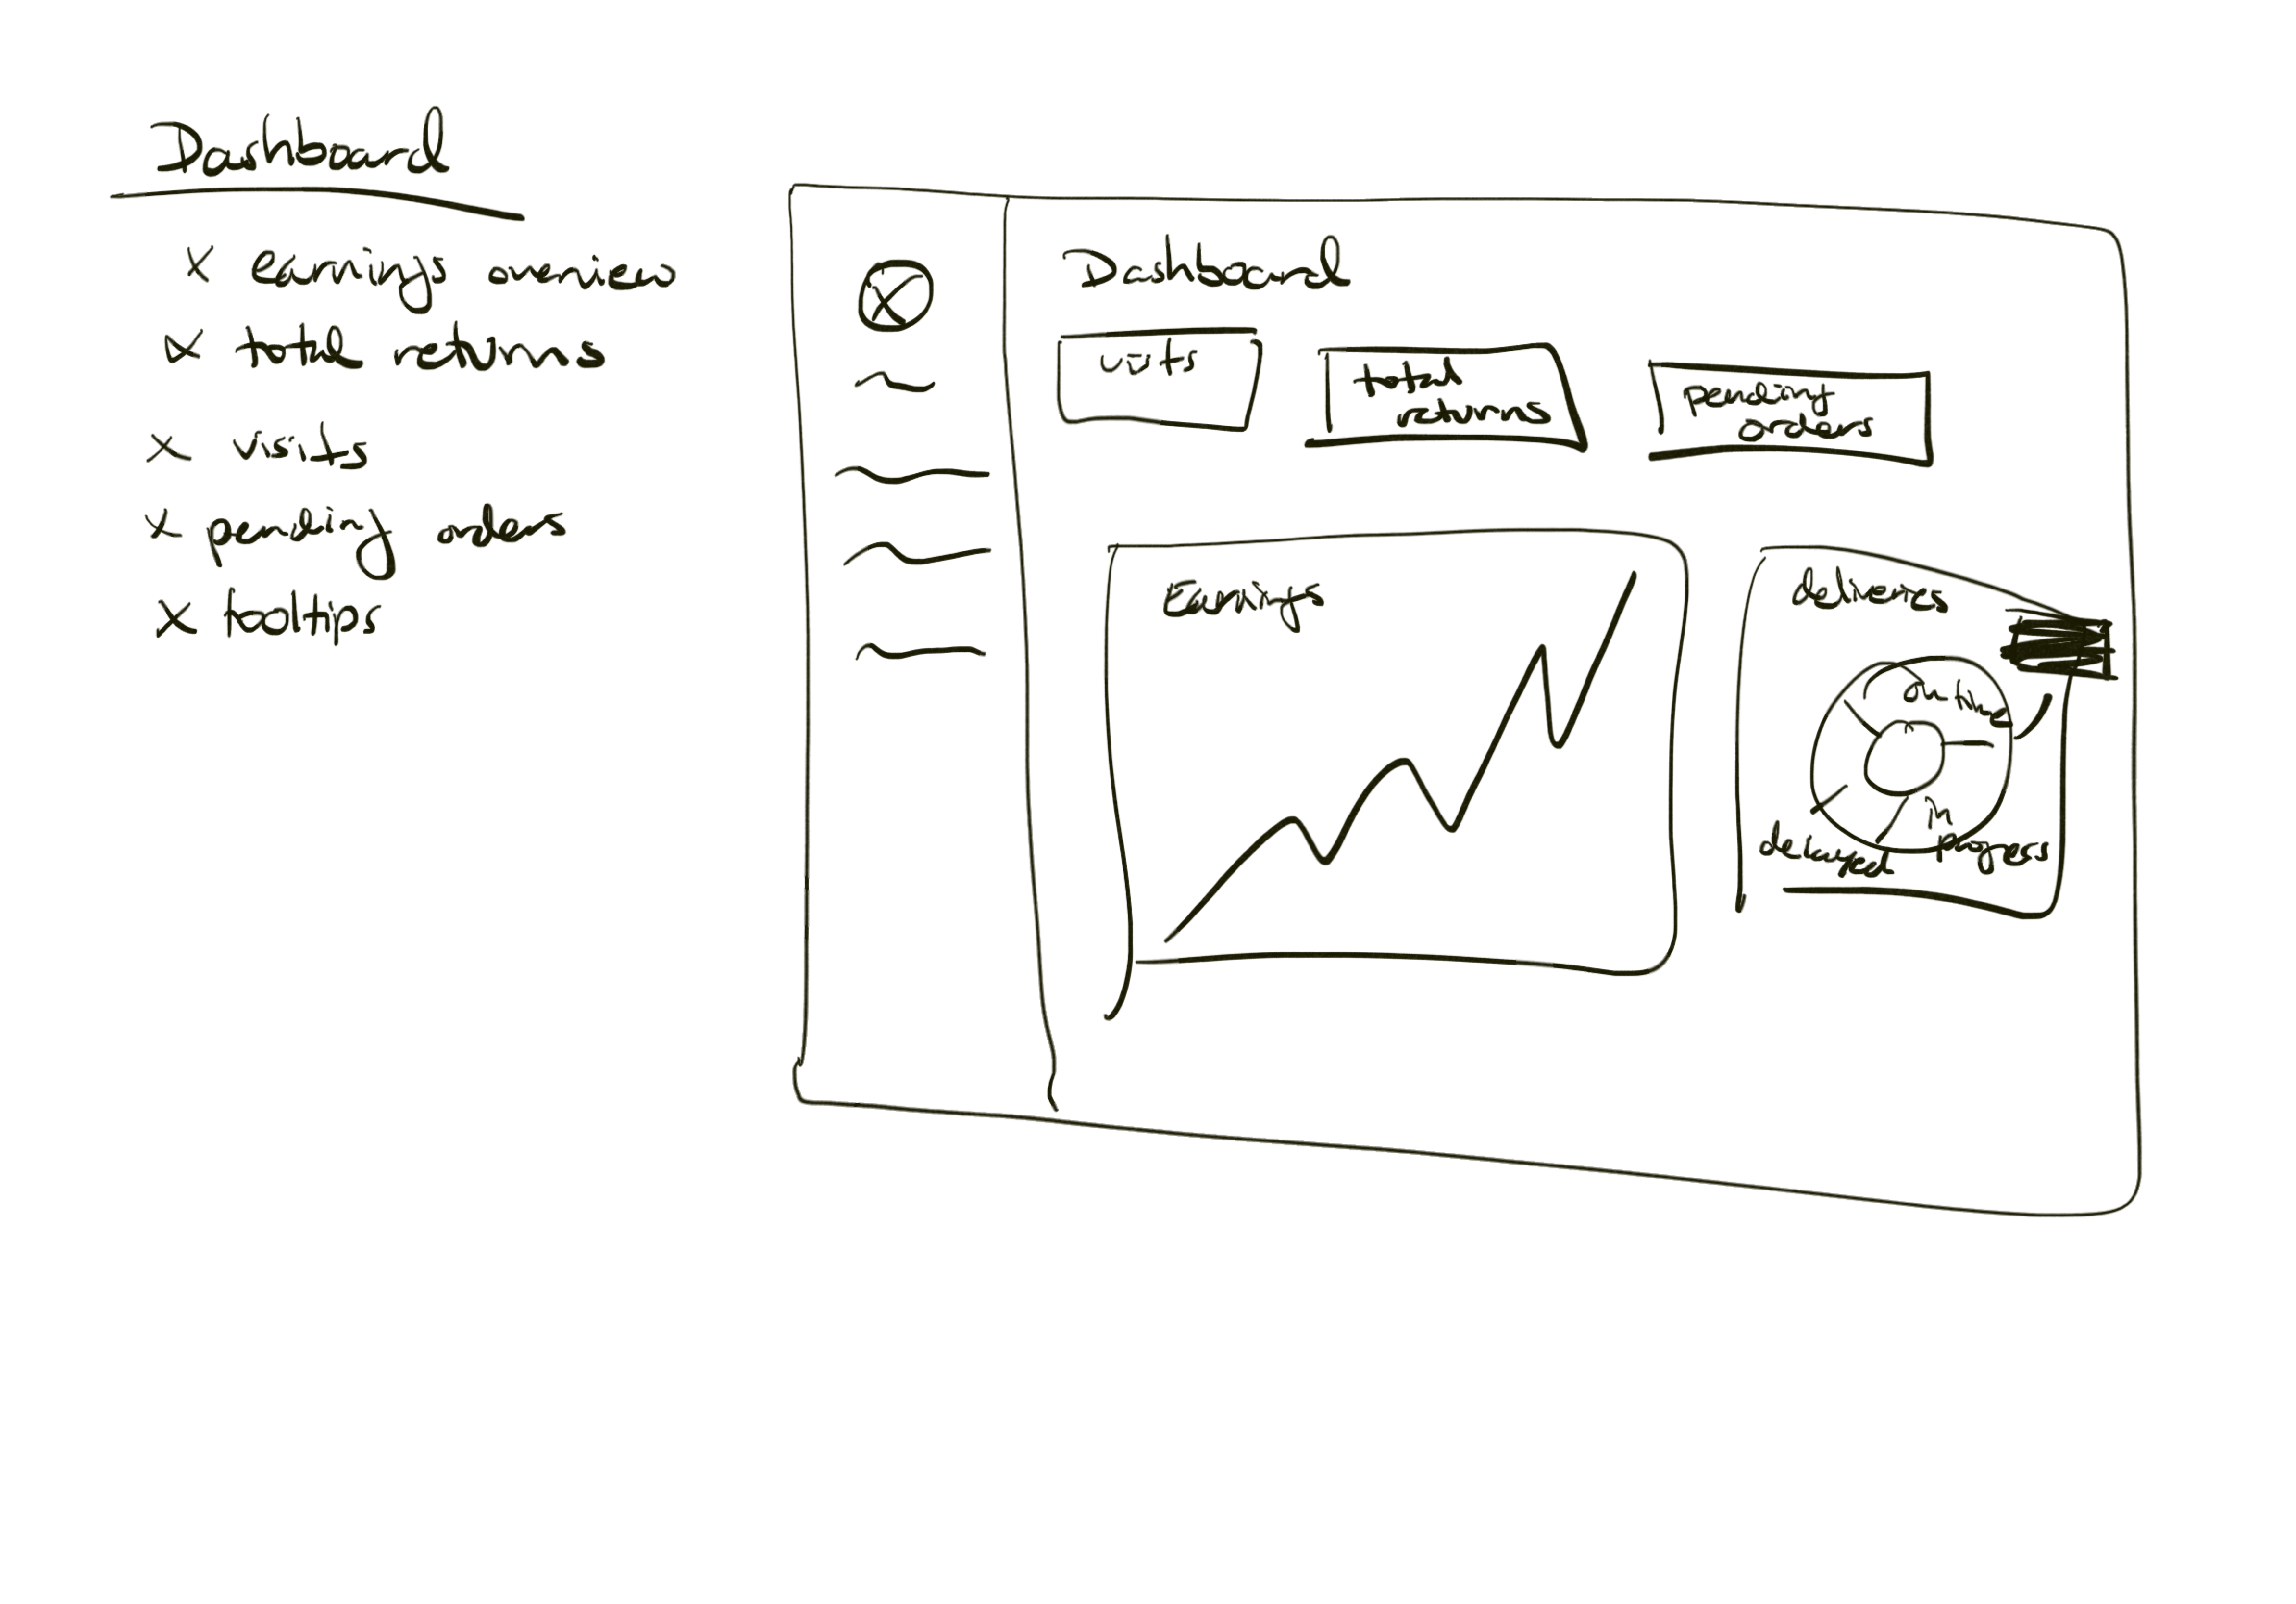 Dashboard
x earnings overview
x total returns
x visits
x pending orders
x tooltips
Dashboard
visits
total
returns
pending
orders
Earnings
deliveries
on time
in
progress
delayed